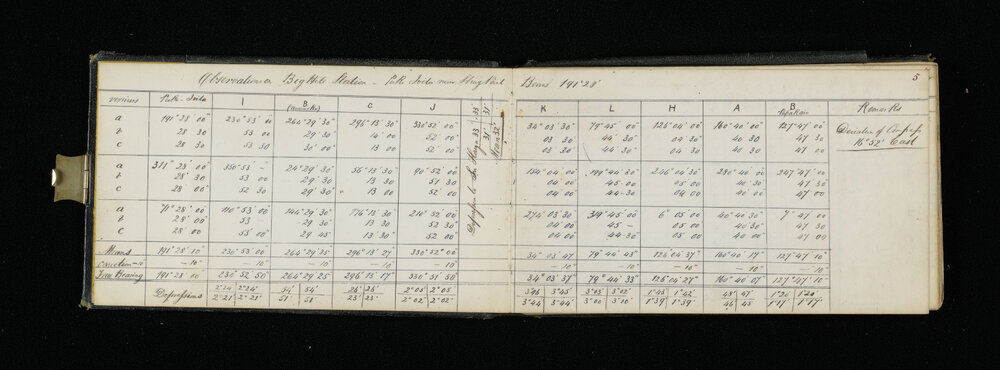 Observations on Bog Hole Station - Puke Ivita near Bearing 191°28' 5
verniers Puk-Ivita I B C J K L H A B Remarks
(manuka)
a 191° 28' 00" 230° 53' 00 264° 29' 30" 296° 13' 30 330° 52' 00" 34° 03' 30" 79° 45' 00" 126° 04' 00" 160° 40' 00" 127° 47' 00" Deviation of Compass
b 28 30 53 00 29' 30" 14' 00 52' 00" 03' 30 44' 30 04 30 40 30 47 30 16° 52' East
c 28 30 53 30 30' 00" 13 00 52' 00 03 30 44' 30 04 30 40 30 47 00
a 311° 28' 00" 350° 53' - 24° 29' 30" 56° 13' 30" 90° 52' 00 154° 04' 00" 199° 44' 30 246° 04' 30" 280° 40' 30 247° 47' 00"
b 28' 30 53 00 29' 30 13 00 51 30 04 00 45 00 05 00 40 30 47 30
c 28' 00" 52 30 29' 30 13 00 52' 00 04 00 44 30 04 00 40 30 47 00
a 71° 28' 00" 110° 53' 00" 144° 29' 30 176° 13' 30" 210° 52' 00 274° 03' 30 319° 45' 00 6° 05' 00 40° 40' 30" 7° 47' 00
b 28' 00 53 29 30 13 30 52 30 04 00 45 - 05 00 40 30 47 00
c 28 00 53 00 29 45 13 30 52 00 04 00 44 30 05 00 40 00 47 00
Means 191° 28' 10" 230° 53' 00 264° 29' 35" 296° 13' 27 330° 52' 00" 34° 03' 47 79° 44' 43" 126° 04' 37" 160° 40' 17 127° 47' 10"
correction -10 -10" -10" -10" -10" -10" -10 -10" -10 -10" -10"
True Bearing 191° 28' 00 230° 52' 50" 264° 29' 25 296° 13' 17 330° 51' 50" 34° 03' 37 79° 44' 33" 126° 04' 27" 160° 40' 07 127° 47' 10
Depressions 2° 24' 2° 24' 54' 54' 26' 26' 2° 05' 2° 05' 3° 45' 3° 03' 3° 02' 1° 43 1° 42 48' 47' 1° 20 1° 20'
2° 21' 2° 23' 51' 51' 23' 23' 2° 02' 2° 02' 3° 44 3° 44' 3° 00' 3° 10' 1° 39 1° 39' 46 45 1° 17 1° 17'
Depression to
Mean 32"